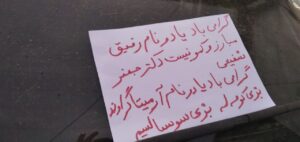 گرامی باد یاد و نام رفیق
مبارز و کمونیست دکتر جعفر
شفیعی
گرامی باد یاد و نام آرمیتا گراوند
بژی کومه له بژی سوسیالیسم